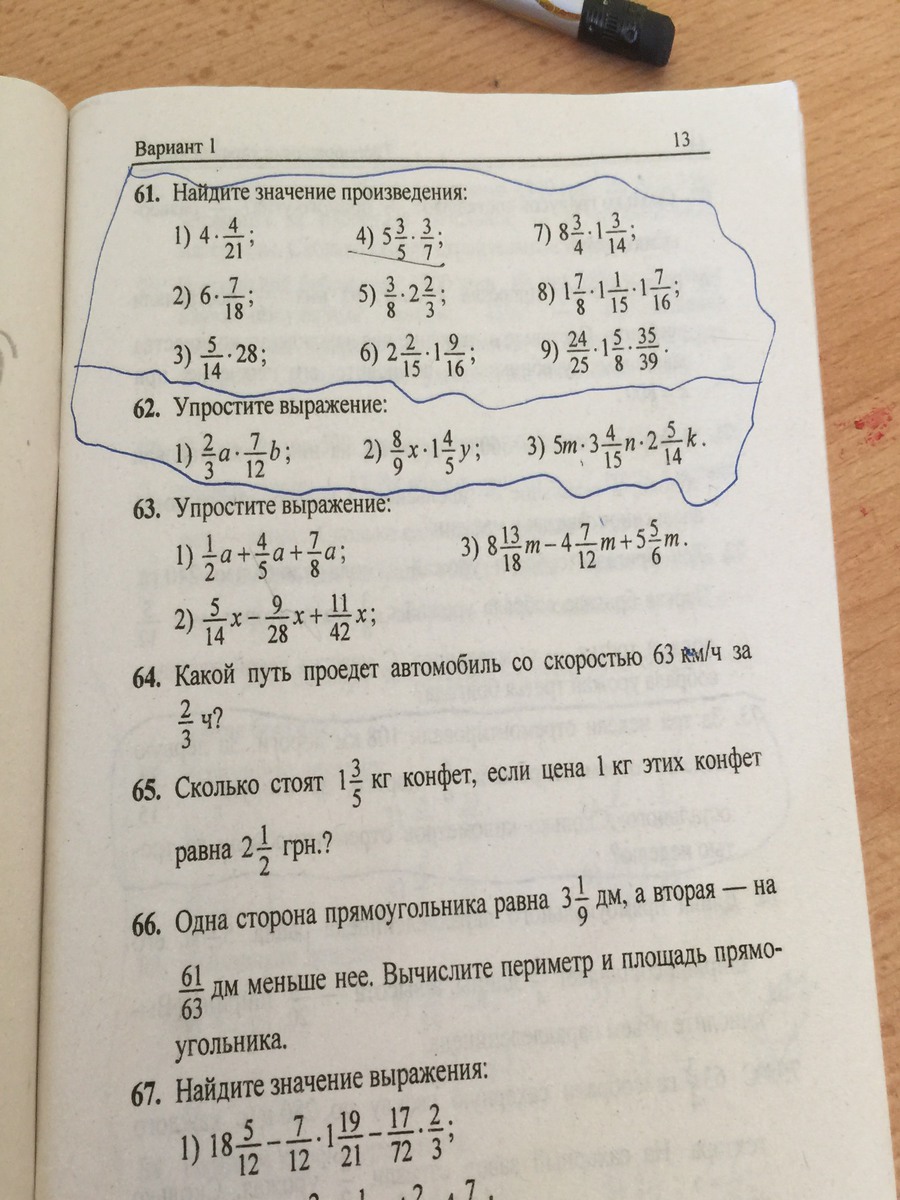 Вариант 1 13
61. Найдите значение произведения:
1) 4 · 4/21; 4) 5 3/5 · 3/7; 7) 8 3/4 · 1 3/14;
2) 6 · 7/18; 5) 3/8 · 2 2/3; 8) 1 7/8 · 1 1/15 · 1 7/16;
3) 5/14 · 28; 6) 2 2/15 · 1 9/16; 9) 24/25 · 1 5/8 · 35/39.
62. Упростите выражение:
1) 2/3 a · 7/12 b; 2) 8/9 x · 1 4/5 y; 3) 5m · 3 4/15 n · 2 5/14 k.
63. Упростите выражение:
1) 1/2 a + 4/5 a + 7/8 a; 3) 8 13/18 m − 4 7/12 m + 5 5/6 m.
2) 5/14 x − 9/28 x + 11/42 x;
64. Какой путь проедет автомобиль со скоростью 63 км/ч за
2/3 ч?
65. Сколько стоят 1 3/5 кг конфет, если цена 1 кг этих конфет
равна 2 1/2 грн.?
66. Одна сторона прямоугольника равна 3 1/9 дм, а вторая — на
61/63 дм меньше нее. Вычислите периметр и площадь прямо-
угольника.
67. Найдите значение выражения:
1) 18 5/12 − 7/12 · 1 19/21 − 17/72 · 2/3;